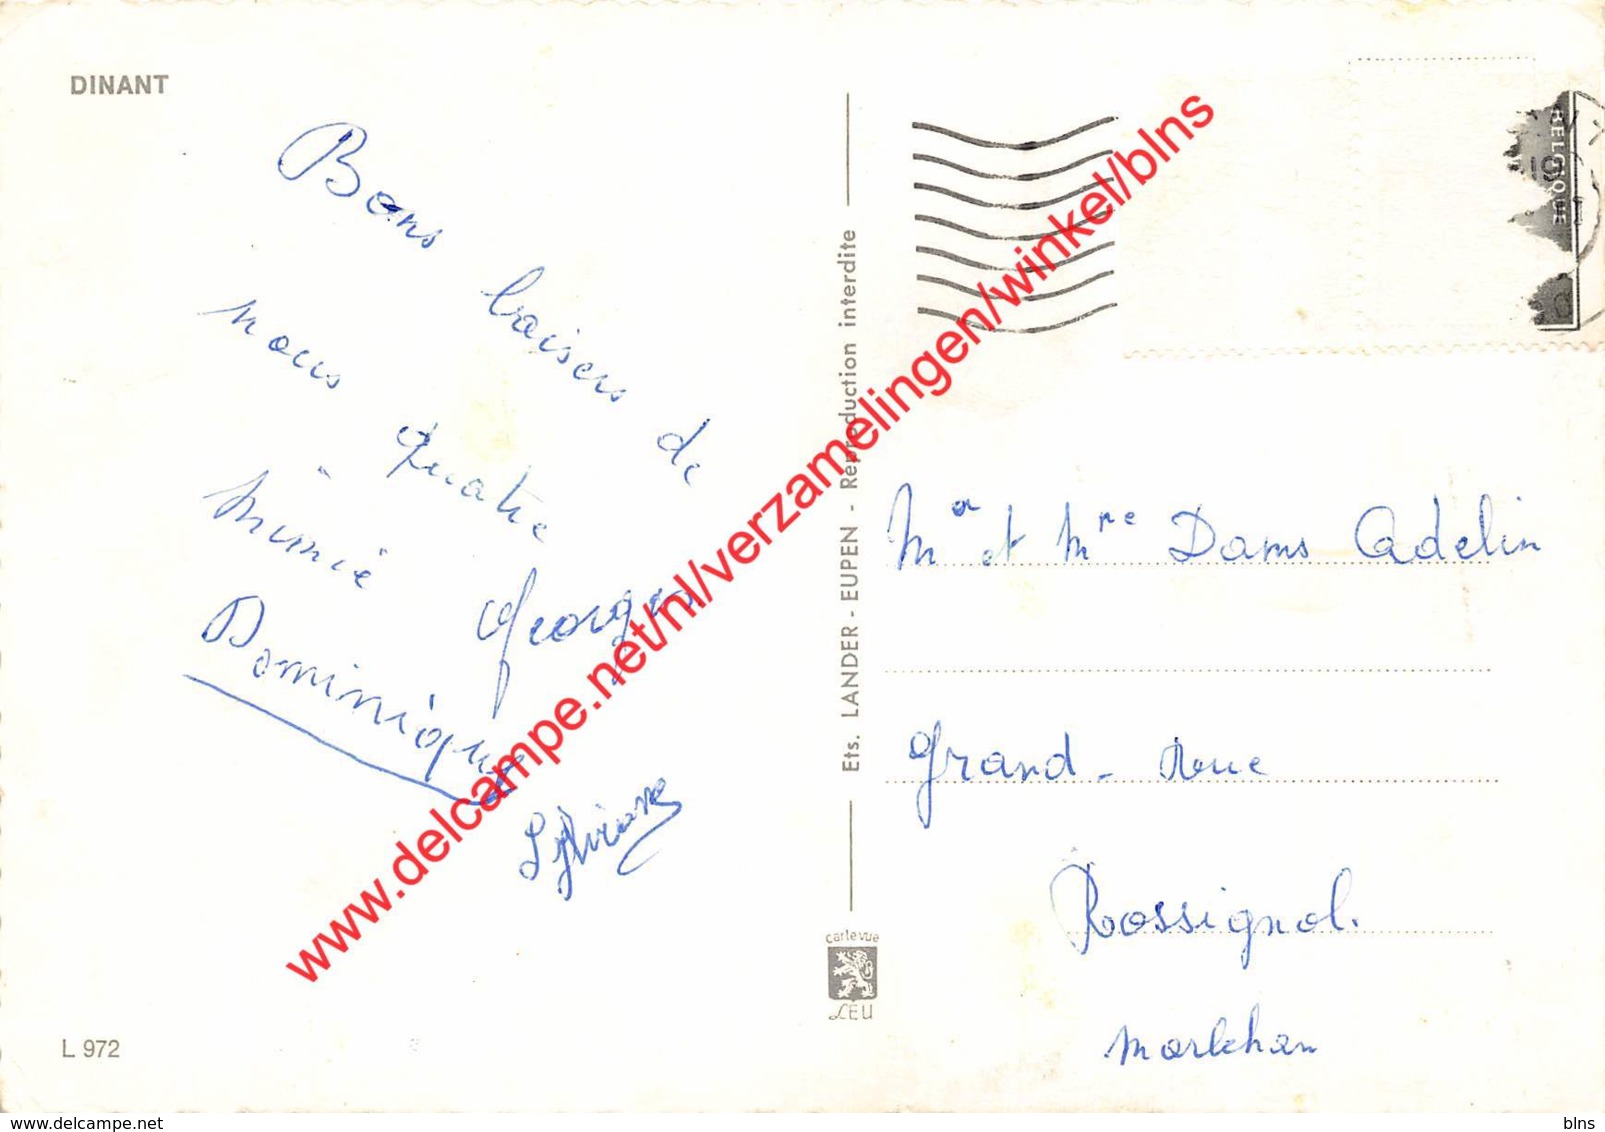 DINANT
Bons baisers de
nous quatre
Mimie Georges
Dominique
Sylviane
L 972
Ets. LANDER - EUPEN - Reproduction interdite
carte vue
LEU
BELGIQUE
Mr et Mme Dams Adelin
Grand-rue
Rossignol.
Marbehan
www.delcampe.net/nl/verzamelingen/winkel/blns
delcampe.net
blns